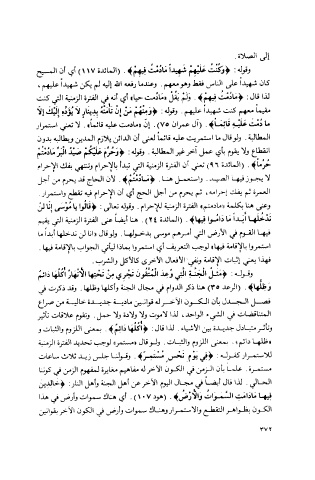 إلى الصلاة.
وقوله: ﴿وَكُنْتُ عَلَيْهِمْ شَهِيداً مَادُمْتُ فِيهِمْ﴾. (المائدة ١١٧) أي أن المسيح
كان شهيداً على الناس فقط وهو معهم. وعندما رفعه الله إليه لم يكن شهيداً عليهم،
لذا قال: ﴿مَادُمْتُ فِيهِمْ﴾. ولم يقل «مادمت حياً» أي أنه في الفترة الزمنية التي كنت
مقيماً معهم كنت شهيداً عليهم. وقوله: ﴿وَمِنْهُمْ مَنْ إِنْ تَأْمَنْهُ بِدِينَارٍ لَا يُؤَدِّهِ إِلَيْكَ إِلَّا
مَا دُمْتَ عَلَيْهِ قَائِماً﴾. (آل عمران ٧٥). إن «مادمت عليه قائماً». لا تعني استمرار
المطالبة. ولو قال ما استمريت عليه قائماً لعنى أن الدائن يلازم المدين ويطالبه بدون
انقطاع ولا يقوم بأي عمل آخر غير المطالبة. وقوله: ﴿وَحُرِّمَ عَلَيْكُمْ صَيْدُ الْبَرِّ مَادُمْتُمْ
حُرُماً﴾. (المائدة ٩٦) تعني أن الفترة الزمنية التي تبدأ بالإحرام وتنتهي بفك الإحرام
لا يجوز فيها الصيد. واستعمل هنا. ﴿مَادُمْتُمْ﴾. لأن الحاج قد يحرم من أجل
العمرة ثم يفك إحرامه، ثم يحرم من أجل الحج أي أن الإحرام فيه تقطع واستمرار.
وعنى هنا بكلمة «مادمتم» الفترة الزمنية للإحرام. وقوله تعالى: ﴿قَالُوا يَا مُوسَى إِنَّا لَنْ
نَدْخُلَهَا أَبَداً مَا دَامُوا فِيهَا﴾. (المائدة ٢٤). هنا أيضاً عنى الفترة الزمنية التي يقيم
فيها القوم في الأرض التي أمرهم موسى بدخولها. ولو قال «انا لن ندخلها أبداً ما
استمروا بالإقامة فيها» لوجب التعريف أي استمروا بماذا ليأتي الجواب بالإقامة فيها.
فهذا يعني إثبات الإقامة ونفي الأفعال الأخرى كالأكل والشرب.
وقوله: ﴿مَثَلُ الْجَنَّةِ الَّتِي وُعِدَ الْمُتَّقُونَ تَجْرِي مِنْ تَحْتِهَا الْأَنْهَارُ أُكُلُهَا دَائِمٌ
وَظِلُّهَا﴾. (الرعد ٣٥) هنا ذكر الدوام في مجال الجنة وأكلها وظلها. وقد ذكرت في
فصل الجدل بأن الكون الآخر له قوانين مادية جديدة خالية من صراع
المتناقضات في الشيء الواحد، لذا لاموت ولا ولادة ولا حمل. وتقوم علاقات تأثير
وتأثر متبادل جديدة بين الأشياء. لذا قال: ﴿أُكُلُهَا دَائِمٌ﴾. بمعنى اللزوم والثبات و
«ظلها دائم». بمعنى اللزوم والثبات. ولو قال «مستمر» لوجب تحديد الفترة الزمنية
للاستمرار كقوله: ﴿فِي يَوْمِ نَحْسٍ مُسْتَمِرٍّ﴾. وقولنا جلس زيد ثلاث ساعات
مستمرة. علماً بأن الزمن في الكون الآخر له مفاهيم مغايرة لمفهوم الزمن في كوننا
الحالي. لذا قال أيضاً في مجال اليوم الآخر عن أهل الجنة وأهل النار: ﴿خَالِدِينَ
فِيهَا مَادَامَتِ السَّمَوَاتُ وَالْأَرْضُ﴾. (هود ١٠٧). أي هناك سموات وأرض في هذا
الكون بظواهر التقطع والاستمرار وهناك سموات وأرض في الكون الآخر بقوانين
٣٧٢